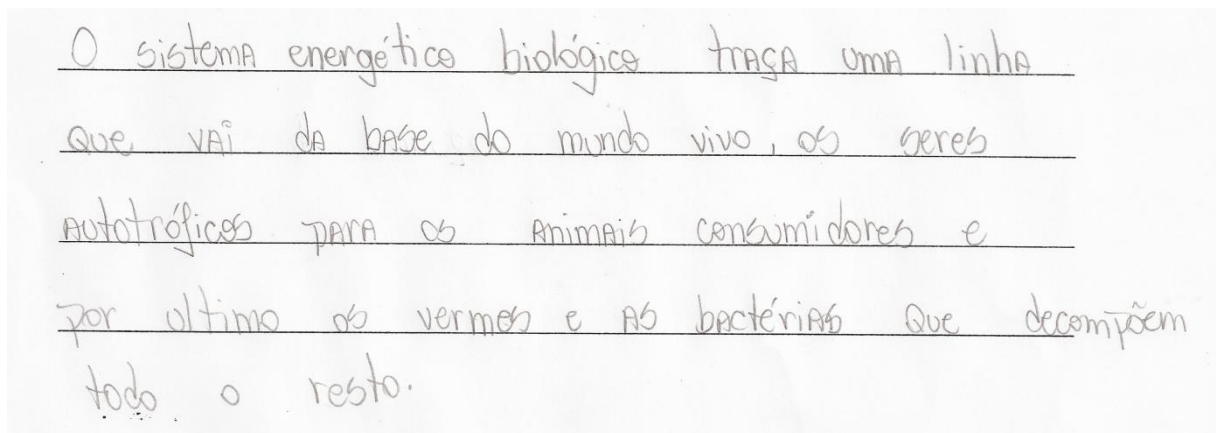 O sistema energético biológico traça uma linha
que vai da base do mundo vivo, os seres
autotróficos para os animais consumidores e
por ultimo os vermes e as bactérias que decompõem
todo o resto.